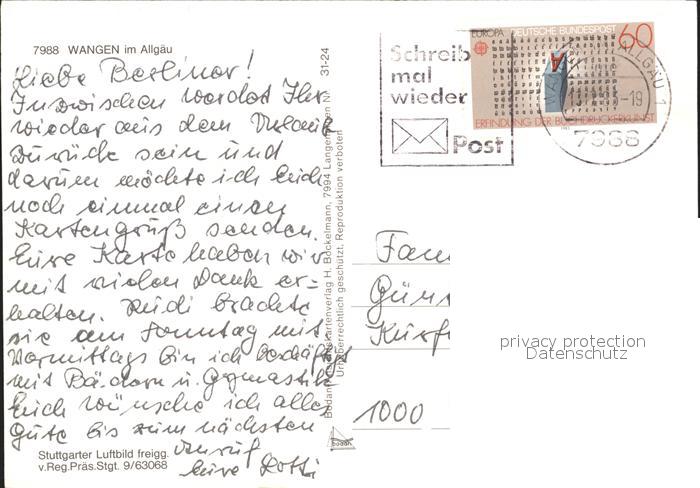 7988 WANGEN im Allgäu
Liebe Berliner!
Inzwischen werdet Ihr
wieder aus dem Urlaub
zurück sein und
darum möchte ich Euch
noch einmal einen
Kartengruß senden.
Eure Karte haben wir
mit vielen Dank er=
halten. Rudi brachte
sie am Sonntag mit.
Vormittags bin ich beschäftigt
mit Bädern u. Gymnastik
Euch wünsche ich alles
Gute bis zum nächsten
Anruf
Eure Lotti
Stuttgarter Luftbild freigg.
v.Reg.Präs.Stgt. 9/63068
31-24
Bodan-Ansichtskartenverlag H. Böckelmann, 7994 Langenargen
Urheberrechtlich geschützt. Reproduktion verboten
bodan
Schreib
mal
wieder
Post
EUROPA DEUTSCHE BUNDESPOST
60
A
ERFINDUNG DER BUCHDRUCKERKUNST
ALLGÄU 1
-19
7988
Fam
Gün
Kurf
1000
privacy protection
Datenschutz